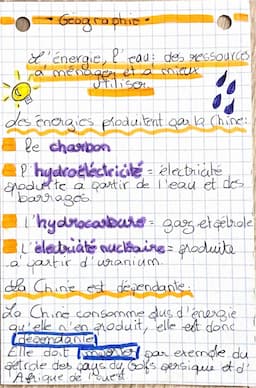 Géographie.
L'énergie, l'eau: des ressources
à ménager et à mieux
utiliser
des énergies produitent par la Chine:
le charbon
l'hydroéléctricité = électricité
produite a partir de l'eau et des
barrages.
l'hydrocarbure = gaz et pétrole
l'électricité nucléaire = produite
a partir d'uranium.
La Chine est dépendante:
La Chine consomme plus d'énergie
qu'elle n'en produit, elle est donc
dépendante
Elle doit importer par exemple du
pétrole des pays du Golfe persique et d'
Afrique de l'ouest